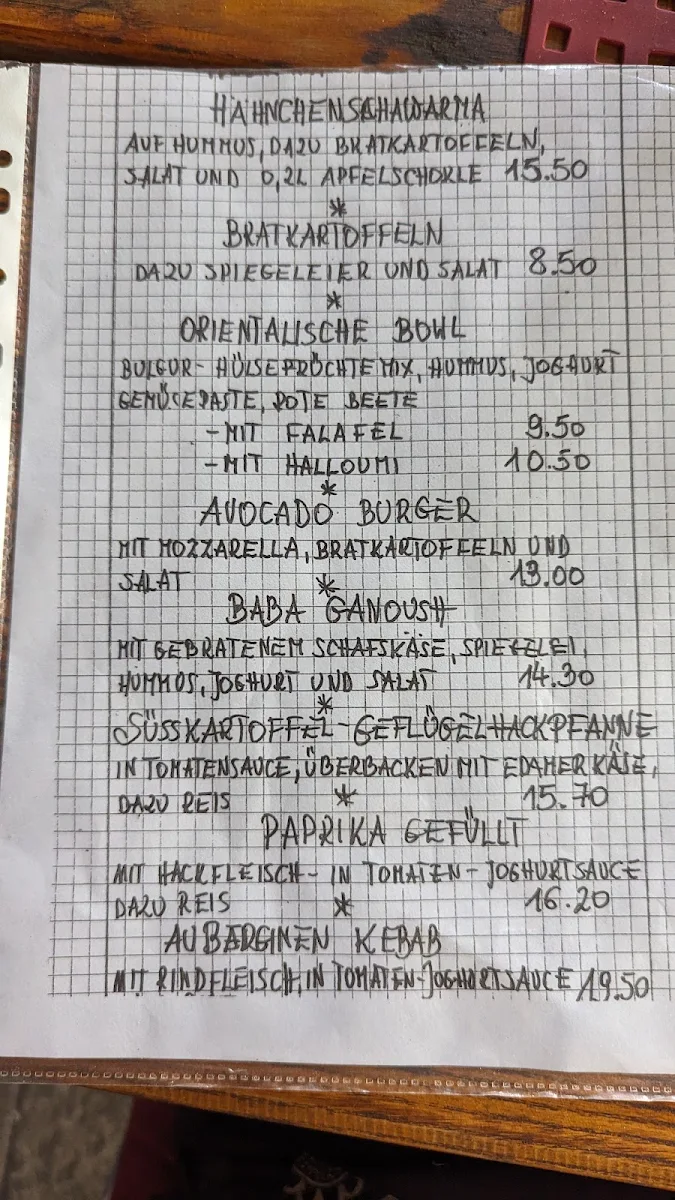 HÄHNCHENSCHAWARMA
AUF HUMMUS, DAZU BRATKARTOFFELN,
SALAT UND 0,2L APFELSCHORLE 15.50
*
BRATKARTOFFELN
DAZU SPIEGELEIER UND SALAT 8.50
*
ORIENTALISCHE BOWL
BULGUR- HÜLSEFRÜCHTEMIX, HUMMUS, JOGHURT
GEMÜSEPASTE, ROTE BEETE
- MIT FALAFEL 9.50
- MIT HALLOUMI 10.50
*
AVOCADO BURGER
MIT MOZZARELLA, BRATKARTOFFELN UND
SALAT * 13.00
BABA GANOUSH
MIT GEBRATENEM SCHAFSKÄSE, SPIEGELEI,
HUMMUS, JOGHURT UND SALAT 14.30
*
SÜSSKARTOFFEL-GEFLÜGELHACKPFANNE
IN TOMATENSAUCE, ÜBERBACKEN MIT EDAMER KÄSE,
DAZU REIS * 15.70
PAPRIKA GEFÜLLT
MIT HACKFLEISCH- IN TOMATEN-JOGHURTSAUCE
DAZU REIS * 16.20
AUBERGINEN KEBAB
MIT RINDFLEISCH, IN TOMATEN-JOGHURTSAUCE 19.50